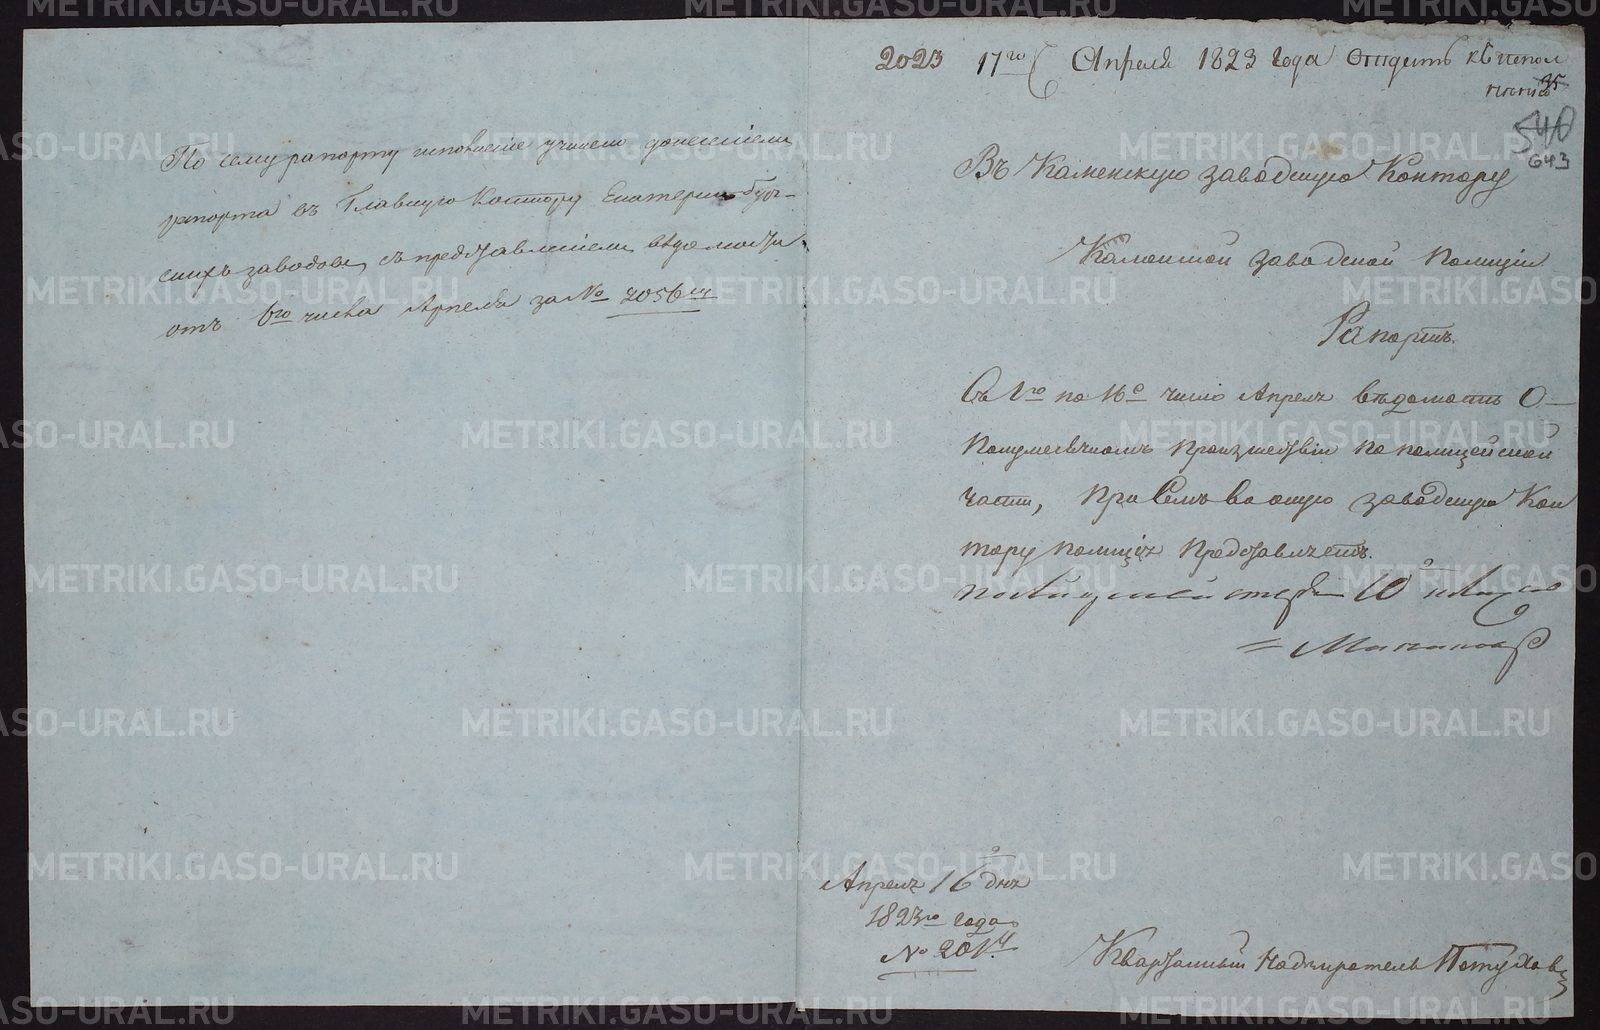 По сему рапорту исполненіе учинено донесеніемъ
рапорта въ Главную Контору Екатеринбург-
скихъ заводовъ, съ представленіемъ вѣдомости
отъ 6го числа Апреля за № 2056м
2023 17го Апреля 1823 Года Отдать къ испол
ненію 35
540
643
Въ Каменскую заводскую Контору
Каменской заводской Полиціи
Рапортъ.
Съ 1го по 16е число Апреля вѣдомость О
Полумесячномъ Произшествіи по полицейской
части, При Семъ во оную заводскую Кон
тору полиція Представляетъ.
Апреля 16 дня
1823го года
№ 201й
Квартальный Надзиратель Петуховъ
METRIKI.GASO-URAL.RU